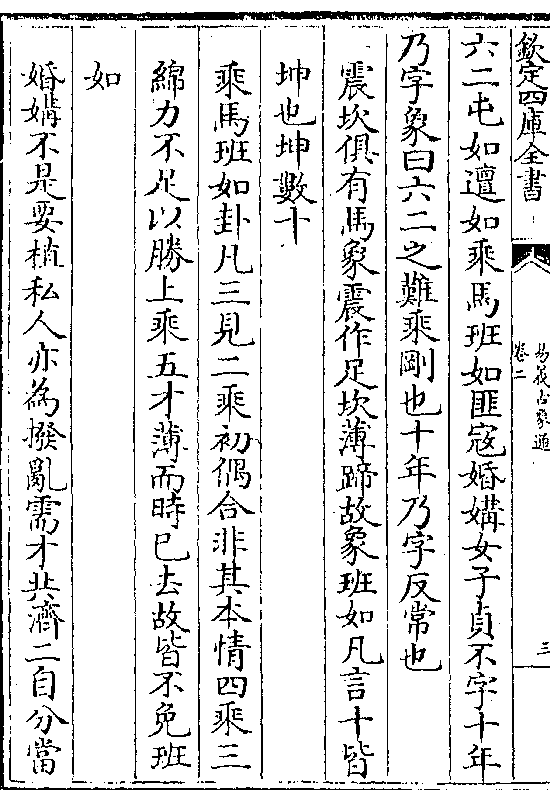 欽定四庫全書
易筏古象通
卷二
三
六二屯如邅如乘馬班如匪寇婚媾女子貞不字十年
乃字象曰六二之難乘剛也十年乃字反常也
震坎俱有馬象震作足坎薄蹄故象班如凡言十皆
坤也坤數十
乘馬班如卦凡三見二乘初偶合非其本情四乘三
綿力不足以勝上乘五才薄而時已去故皆不免班
如
婚媾不是要植私人亦為撥亂需才共濟二自分當